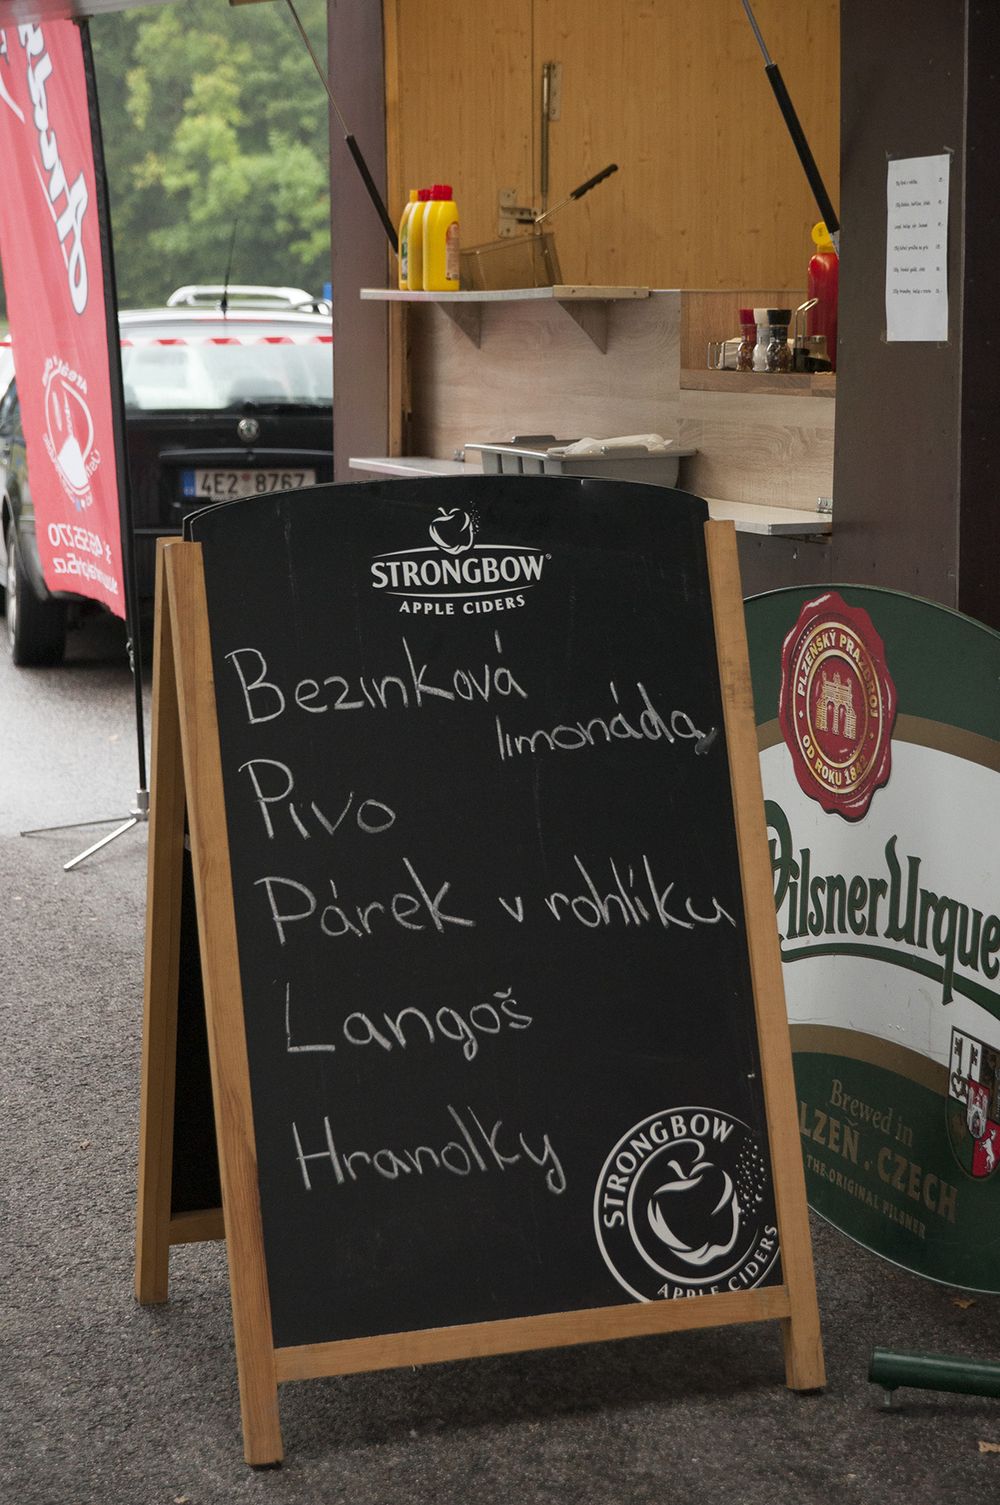 4E2 8767
STRONGBOW
APPLE CIDERS
Bezinková
limonáda
Pivo
Párek v rohlíku
Langoš
Hranolky
STRONGBOW
APPLE CIDERS
PLZEŇSKÝ PRAZDROJ
OD ROKU 1842
Pilsner Urque
Brewed in
LZEŇ. CZECH
THE ORIGINAL PILSNER